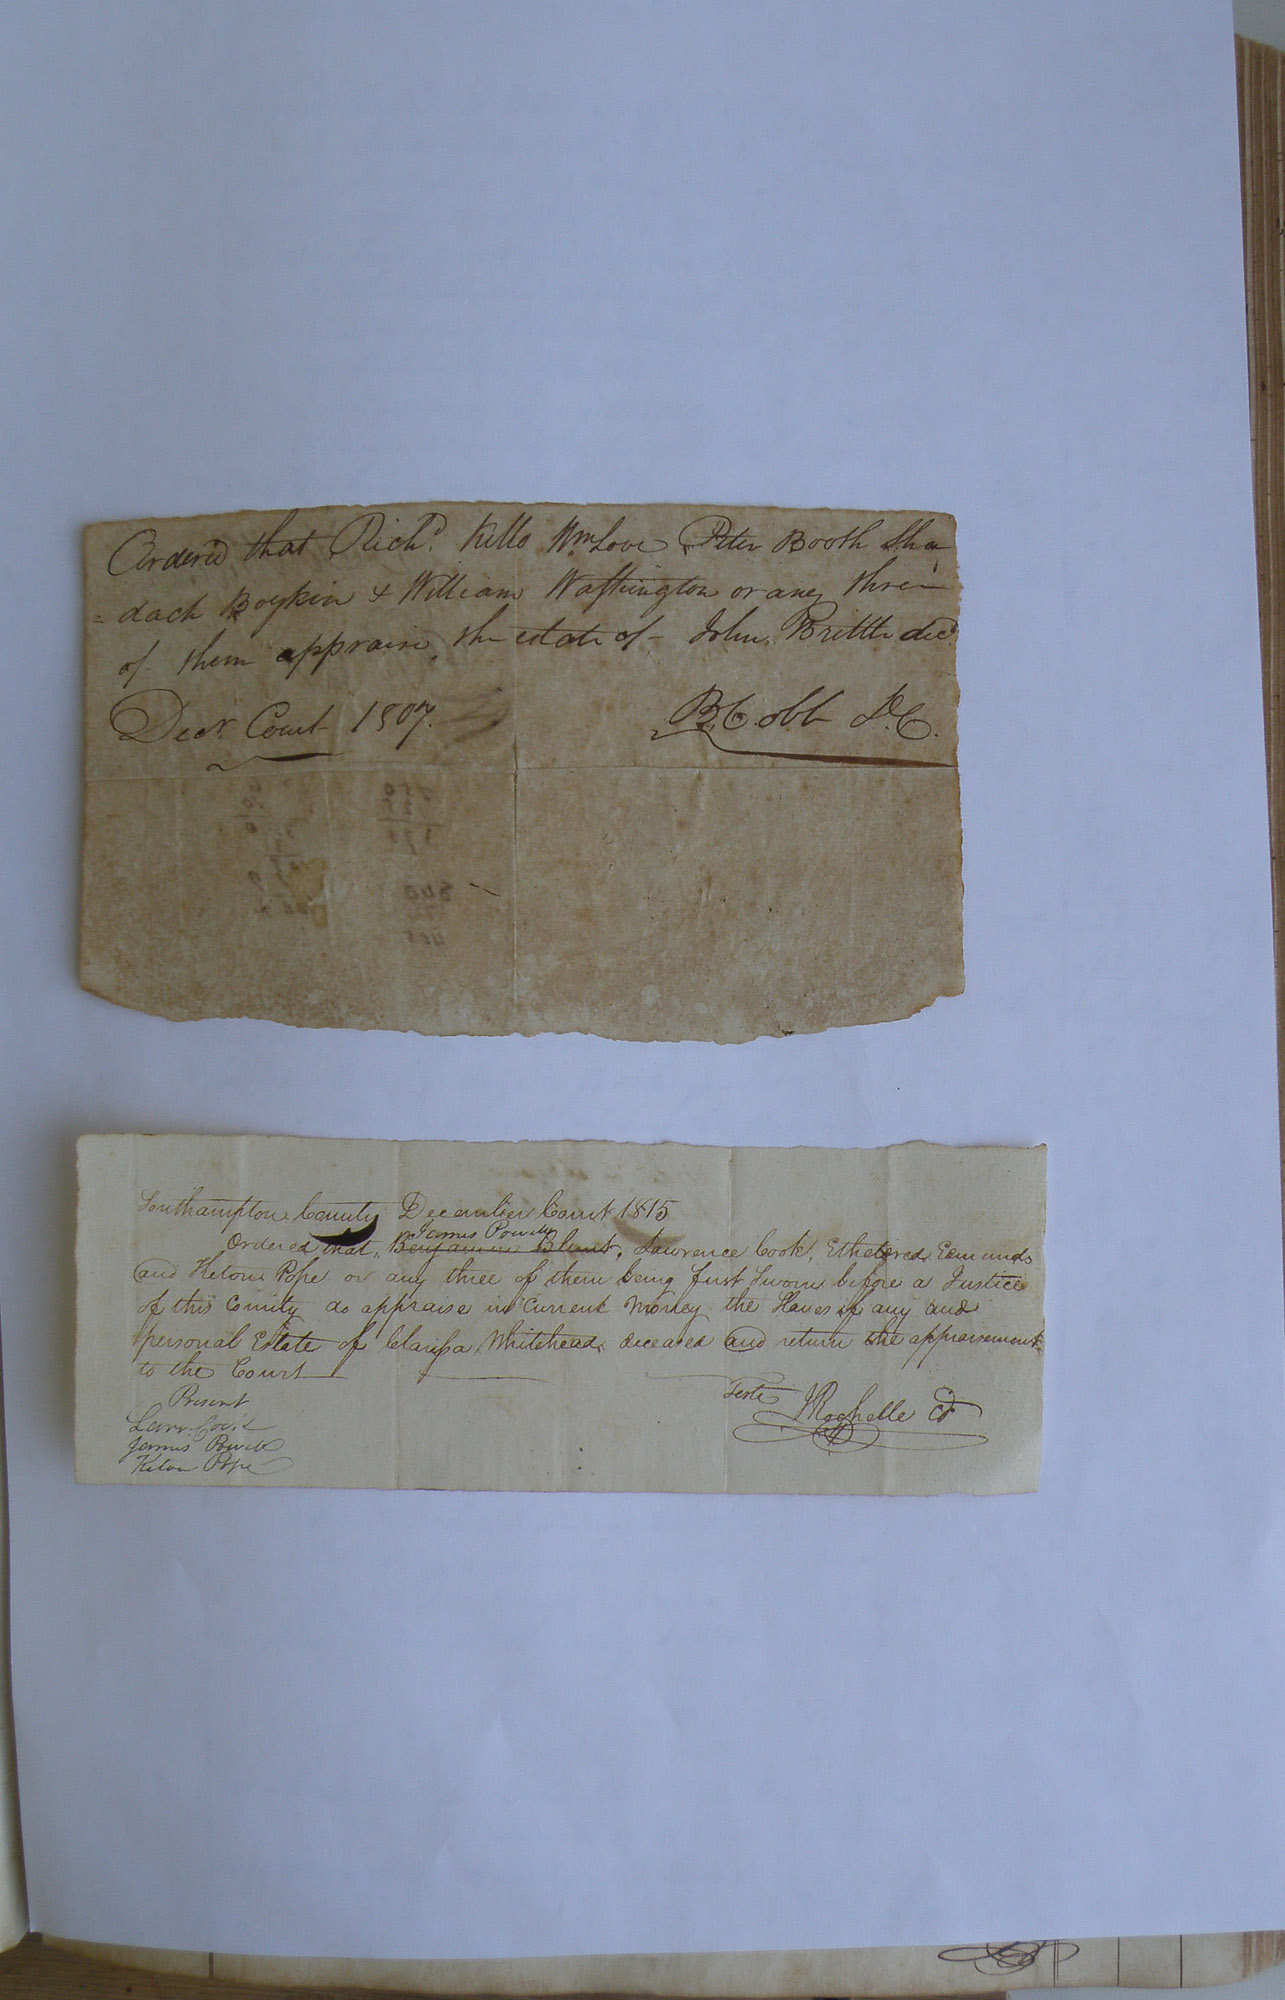 Ordered that Rich.d Kello Wm Love Peter Booth Sha
= dach Boykin & William Washington or any three
of them appraise, the estate of John Brittle decd
Decr. Court 1807.
B. Cobb D.C.
840
Southampton County December Court 1815
James Powell
Ordered that, Benjamin Blunt, Lawrence Cook, Ethelered Edmunds
and Keton Pope or any three of them being first Sworn before a Justice
of this County do appraise in Current Money the Slaves if any and
personal Estate of Clarissa Whitehead deceased and return the appraisement
to the Court
Teste JRochelle
Present
Lawr. Cook
James Powell
Keton Pope